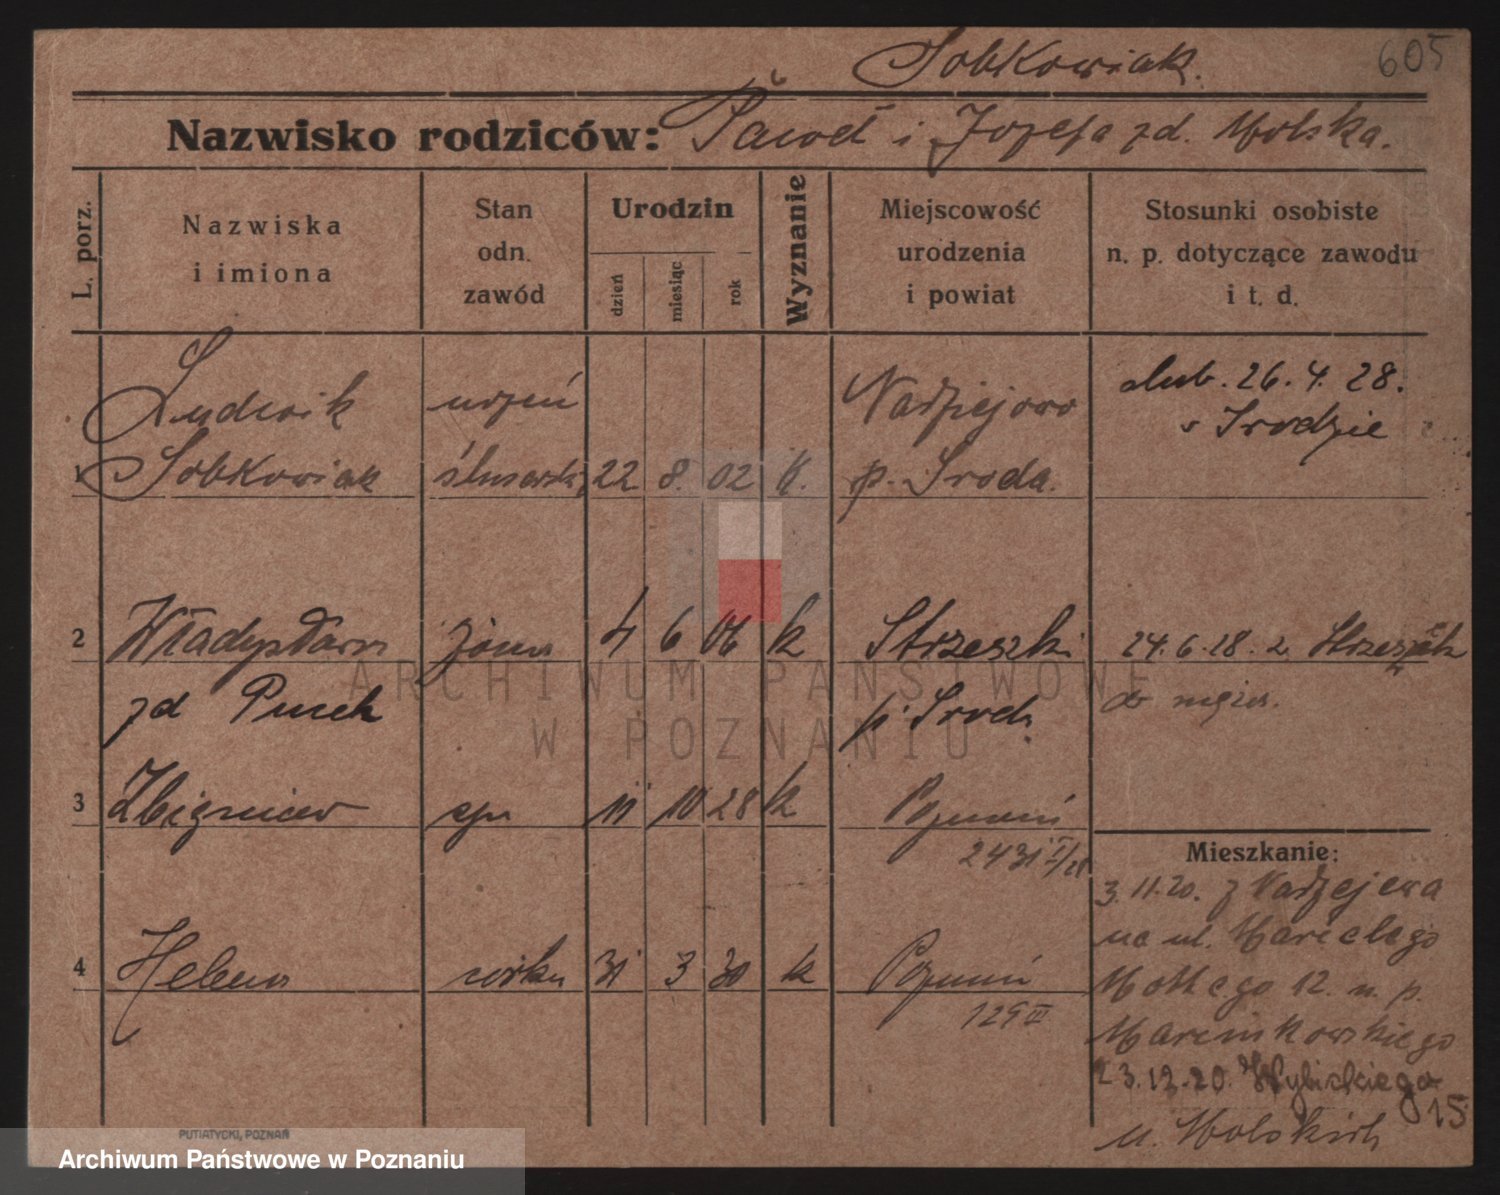 Sobkowiak. 605
Nazwisko rodziców: Paweł i Józefa zd. Wolska.
L. porz.
Nazwiska
i imiona
Stan
odn.
zawód
Urodzin
dzień
miesiąc
rok
Wyznanie
Miejscowość
urodzenia
i powiat
Stosunki osobiste
n. p. dotyczące zawodu
i t. d.
Ludwik uczeń Nadziejewo ślub. 26. 4. 28.
w Środzie
1 Sobkowiak ślusarski 22 8. 02 k. p. Środa.
2 Władysława żona 4 6 06 k Strzeszki 24. 6. 28. z
zd p. Środa do męża.
3 Zbigniew syn 11 10 28 k Poznań
2431
Mieszkanie:
3. 11. 20. z Nadziejewa
na ul. Marcelego
4 Helena córka 31 3 30 k Poznań
Mottego 12. u. p.
129 III
Marcinkowskiego
23. 12. 20. Wybickiego
15
u. Wolskich
PUTIATYCKI, POZNAŃ
ARCHIWUM PAŃSTWOWE
W POZNANIU
Archiwum Państwowe w Poznaniu